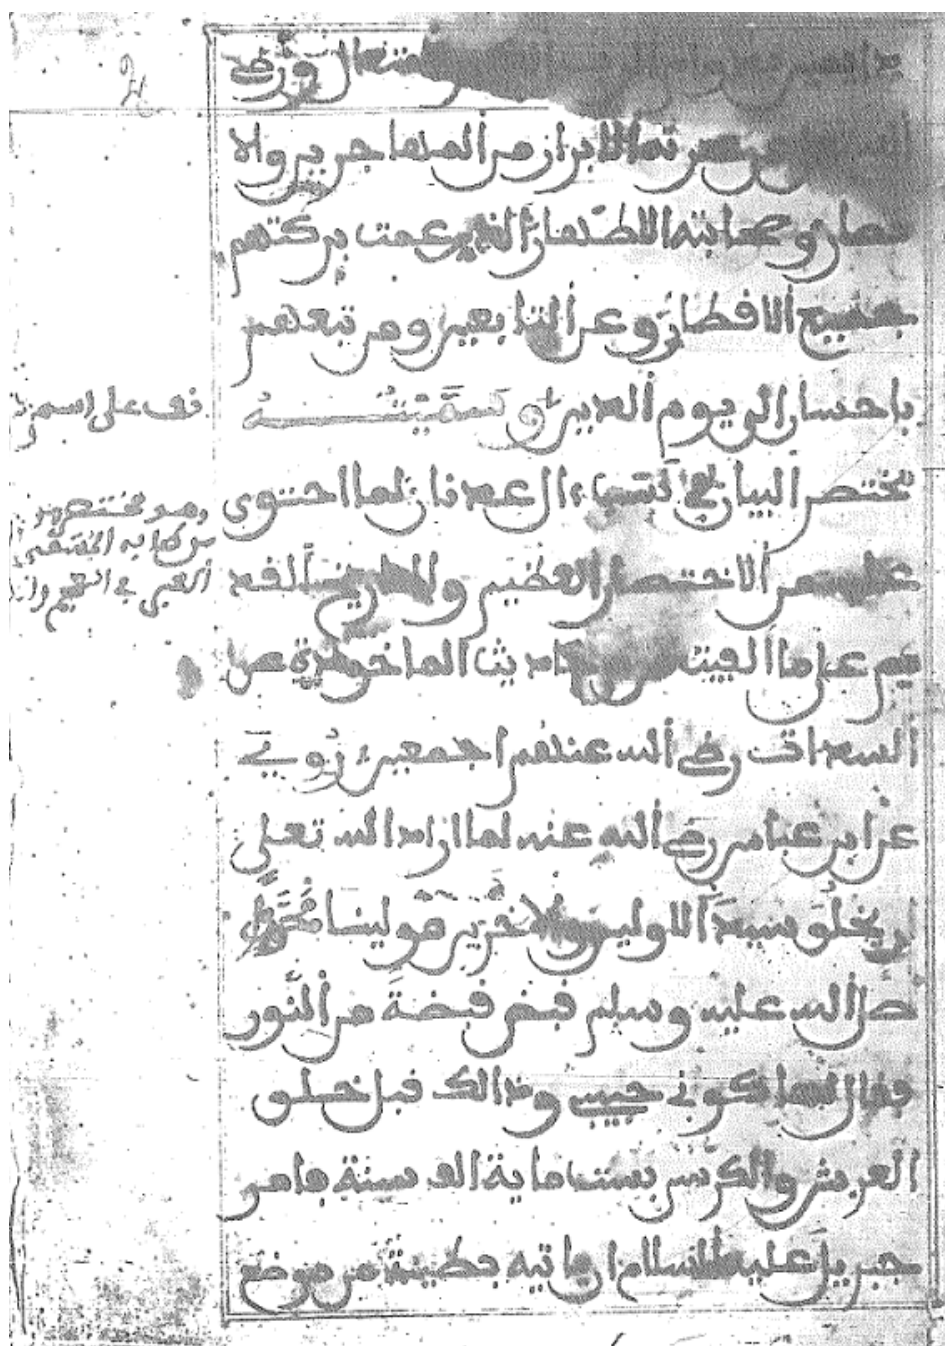 المتعال ورضي
عن عترته الابرار من المهاجرين والا
نصار وصحابته الاطهار الذين عمت بركتهم
جميع الافطار وعن التابعين ومن تبعهم
باحسان الى يوم الدين وسميته
مختصر البيان في نسب ءال عدنان لما احتوى
عليه من الاختصار العظيم والتاريخ الفد
يم على ما الفيت من الاحاديث الماخوذة من
السدات رضي الله عنهم اجمعين روي
عن ابن عباس رضي الله عنه لما اراد الله تعلى
ان يخلق سيد الاولين والاخرين مولينا محمد
صلى الله عليه وسلم قبض قبضة من النور
فقال لها كوني حبيبي وذالك قبل خلق
العرش والكرسي بست ماية الف سنة فامر
جبريل عليه السلام ان ياتيه بطينة من موضع
قف على اسم